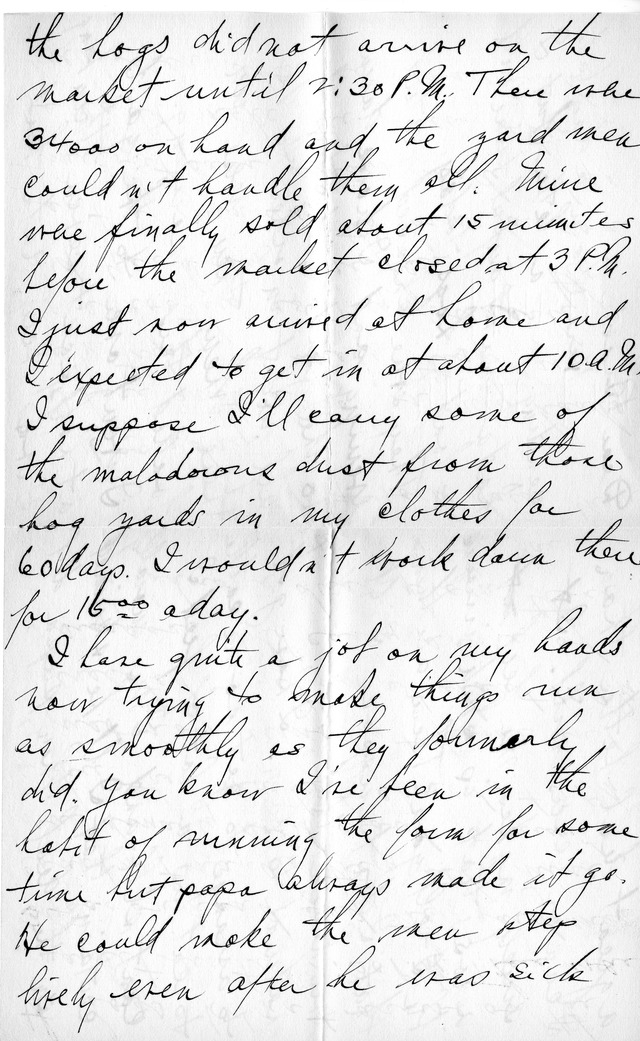 the hogs did not arrive on the
market until 2:30 P.M. There were
34000 on hand and the yard men
couldn't handle them all. Mine
were finally sold about 15 minutes
before the market closed at 3 P.M.
I just now arrived at home and
I expected to get in at about 10 A.M.
I suppose I'll carry some of
the malodorous dust from those
hog yards in my clothes for
60 days. I wouldn't work down there
for 1500 a day.
I have quite a job on my hands
now trying to make things run
as smoothly as they formerly
did. You know I've been in the
habit of running the farm for some
time but papa always made it go.
He could make the men step
lively even after he was sick